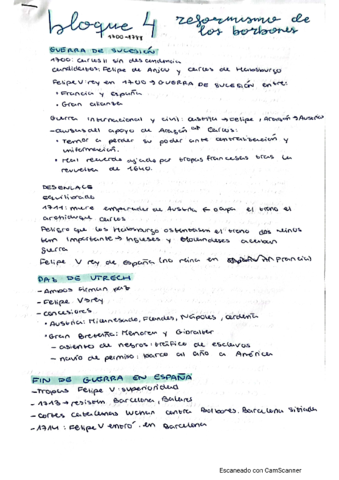 bloque 4 reformismo de
1700-1788 los borbones
GUERRA DE SUCESIÓN
1700: Carlos II sin descendencia
candidatos: Felipe de Anjou y Carlos de Habsburgo
Felipe V rey en 1700 → GUERRA DE SUCESIÓN entre:
• Francia y España
• Gran alianza
Guerra internacional y civil: Castilla → Felipe, Aragón → Austria
- causas del apoyo de Aragón a Carlos:
• Temor a perder su poder ante centralización y
uniformación.
• mal recuerdo dejado por tropas francesas tras la
revuelta de 1640.
DESENLACE
equilibrada
1711: muere emperador de Austria ocupa el trono el
archiduque Carlos
Peligro que los Habsburgo ostentasen el trono dos reinos
tan importante → Ingleses y Holandeses acaban
guerra
Felipe V rey de España (no reina en Francia)
PAZ DE UTRECH
- Ambos firman paz
- Felipe V rey
- concesiones
• Austria: Milanesado, Flandes, Nápoles, Cerdeña
• Gran Bretaña: Menorca y Gibraltar
- asiento de negros: tráfico de esclavos
- navío de permiso: barco al año a América
FIN DE GUERRA EN ESPAÑA
- Tropas Felipe V superioridad
- 1713 → resisten Barcelona, Balares
- Cortes Catalanas luchan contra Borbones. Barcelona sitiada
- 1714: Felipe V entró en Barcelona
Escaneado con CamScanner